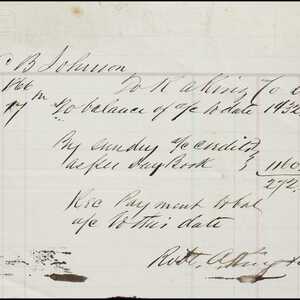 B Johnson
1866 To R A King Co
17 To balance of a/c to date 1932
By sundry a/c credits
as per Day Book 1160
272
Rec Payment to bal
a/c to this date
Robt. A King